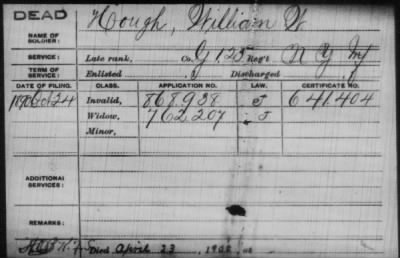 DEAD
NAME OF SOLDIER: Hough, William W.
SERVICE: Late rank, Co. G 125 Reg't N Y Inf
TERM OF SERVICE: Enlisted , Discharged ,
DATE OF FILING. CLASS. APPLICATION NO. LAW. CERTIFICATE NO.
1890 Oct 24 Invalid, 868.938 J 641.404
Widow, 762 207 J
Minor,
ADDITIONAL SERVICES:
REMARKS:
Died April 23, 1902